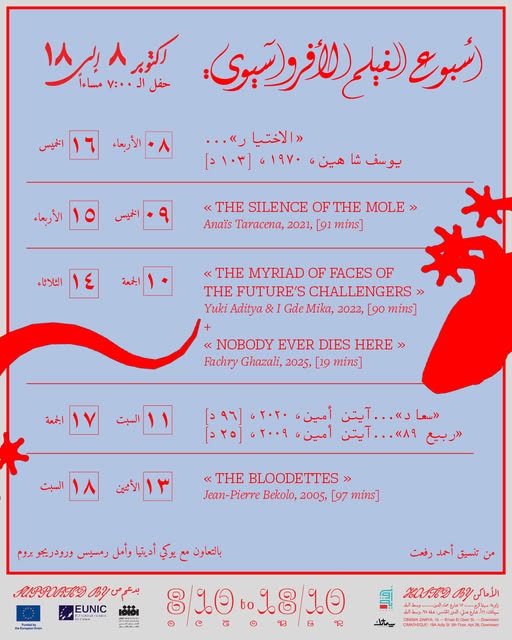 أسبوع الفيلم الأفروآسيوي:
اكتوبر ٨ إلى ١٨
حفل الـ ٧:٠٠ مساءاً
«الاختيار»...
يوسف شاهين، ١٩٧٠، [١٠٣ د]
٠٨ الأربعاء ١٦ الخميس
« THE SILENCE OF THE MOLE »
Anaïs Taracena, 2021, [91 mins]
٠٩ الخميس ١٥ الأربعاء
« THE MYRIAD OF FACES OF
THE FUTURE'S CHALLENGERS »
Yuki Aditya & I Gde Mika, 2022, [90 mins]
+
« NOBODY EVER DIES HERE »
Fachry Ghazali, 2025, [19 mins]
١٠ الجمعة ١٤ الثلاثاء
«سعاد»...آيتن أمين، ٢٠٢٠، [٩٦ د]
«ربيع ٨٩»...آيتن أمين، ٢٠٠٩، [٢٥ د]
١١ السبت ١٧ الجمعة
« THE BLOODETTES »
Jean-Pierre Bekolo, 2005, [97 mins]
١٣ الأثنين ١٨ السبت
من تنسيق أحمد رفعت
بالتعاون مع يوكي أديتيا وأمل رمسيس ورودريجو بروم
SUPPORTED BY بدعم من
Funded by
the European Union
EUNIC
8/10 to 18/10
HOSTED BY الأماكن
سيماتك